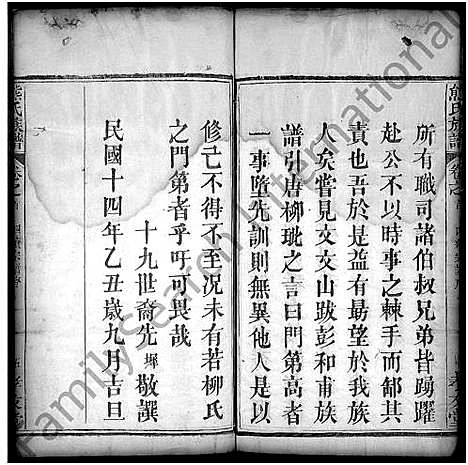 熊氏族譜
卷之
所有職司諸伯叔兄弟皆踴躍
赴公不以時事之棘手而郤其
責也吾於是益有勗望於我族
人矣嘗見文文山跋彭和甫族
譜引唐柳玭之言曰門第高者
一事墮先訓則無異他人是以
修己不得不至況未有若柳氏
之門第者乎吁可畏哉
十九世裔先墀敬譔
民國十四年乙丑歲九月吉旦
熊氏族譜
卷之
FamilySearch International